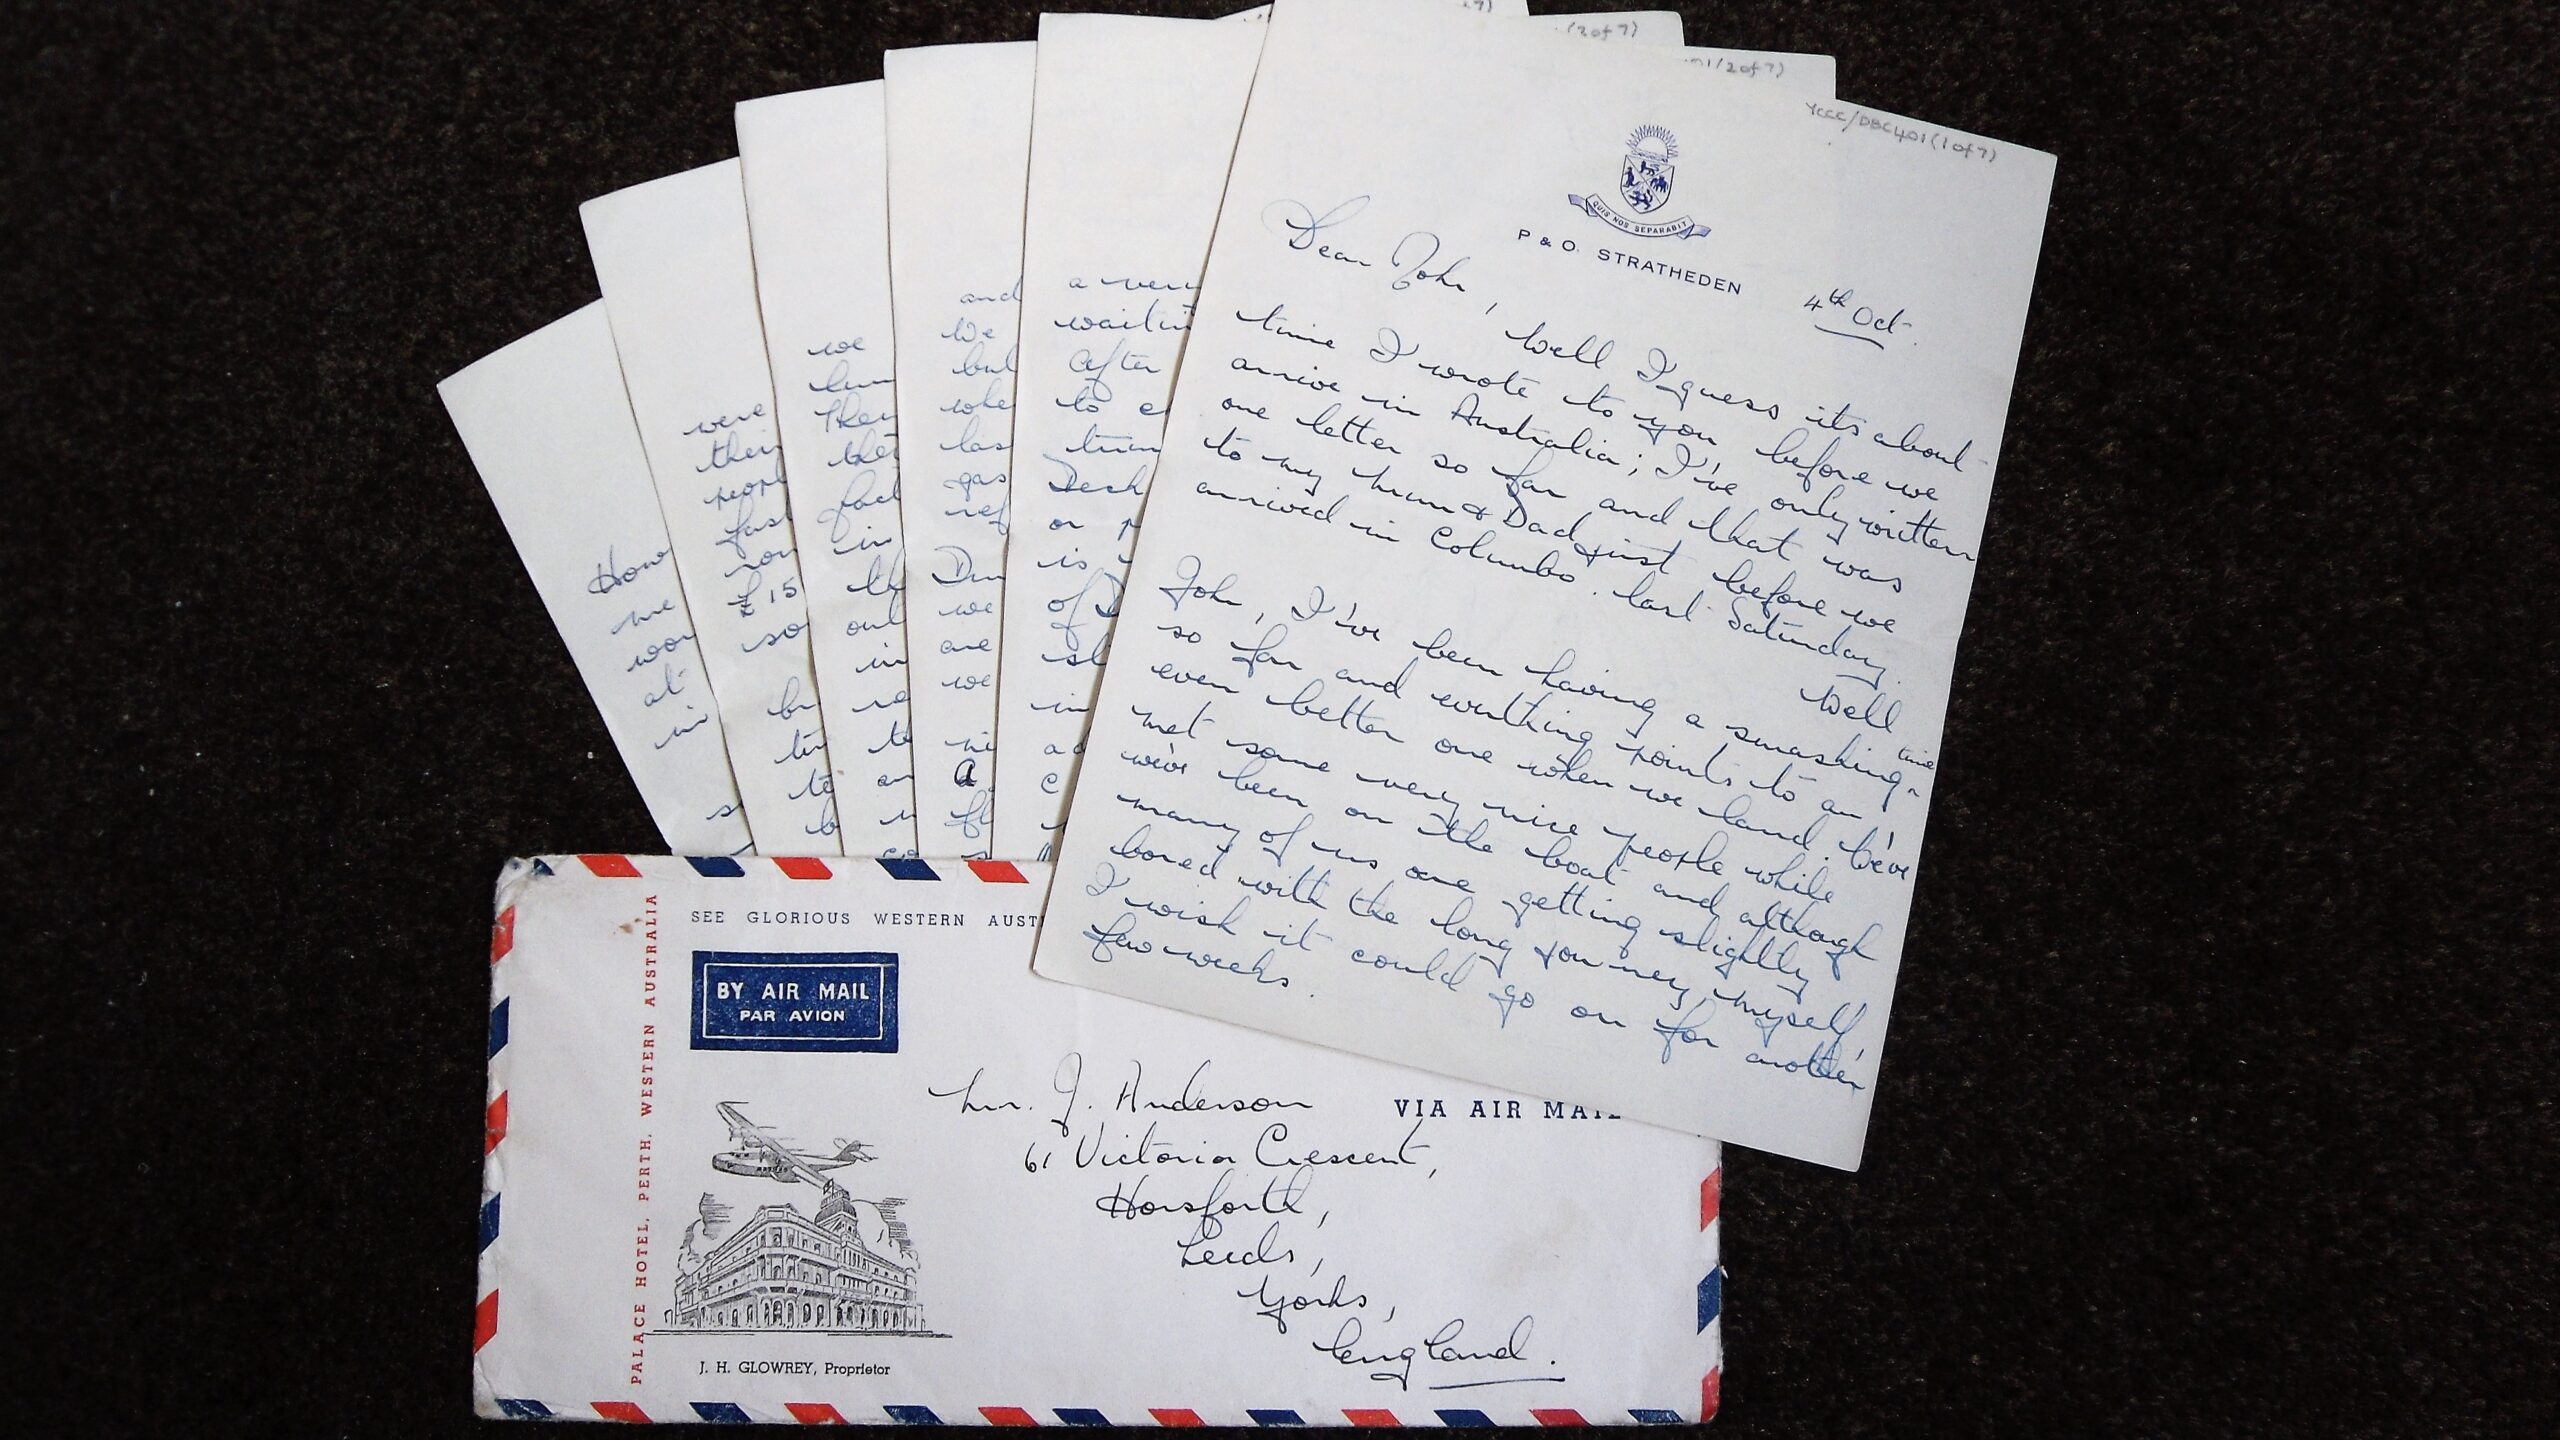 YCCC/DBC401(1 of 7)
01/2of7)
(2of7)
QUIS NOS SEPARABIT
P & O. STRATHEDEN
4th Oct.
Dear John,
Well I guess it's about
time I wrote to you before we
arrive in Australia; I've only written
one letter so far and that was
to my Mum & Dad just before we
arrived in Columbo. last Saturday.
Well
John, I've been having a smashing time
so far and everthing points to an
even better one when we land. We've
met some very nice people while
we've been on the boat and although
many of us are getting slightly
bored with the long journey, myself,
I wish it could go on for another
few weeks.
a very
waitin
After
to e
Desh
or p
is
of D
in
and
We
but
whe
las
gas
ref
Dun
we
are
we
we
hum
then
thei
fact
in
th
out
in
re
to
an
were
their
peopl
fast
£15
so
How
me
wor
at
SEE GLORIOUS WESTERN AUST
BY AIR MAIL
PAR AVION
PALACE HOTEL, PERTH, WESTERN AUSTRALIA
J. H. GLOWREY, Proprietor
VIA AIR MAIL
Mr. J. Anderson
61 Victoria Crescent,
Horsforth,
Leeds,
Yorks,
England.